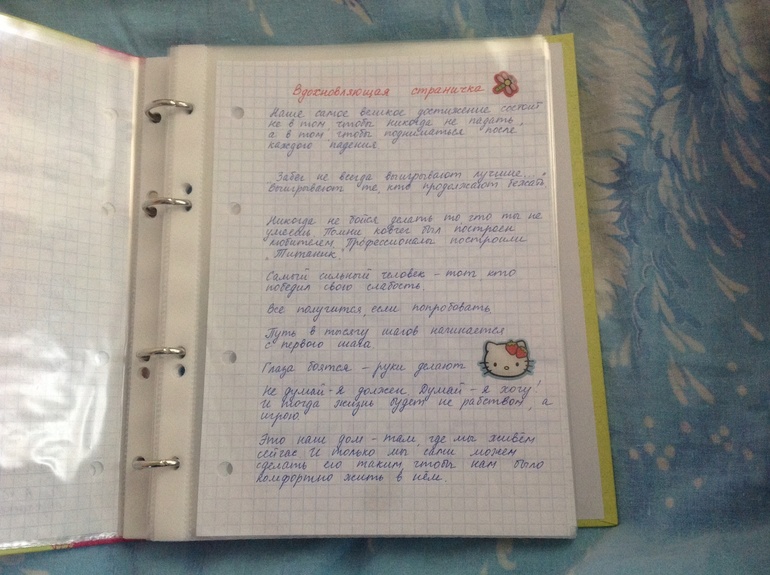 Вдохновляющая страничка
Наше самое великое достижение состоит
не в том чтобы никогда не падать,
а в том чтобы подниматься после
каждого падения
Забег не всегда выигрывают лучшие...
выигрывают те, кто продолжают бежать
Никогда не бойся делать то что ты не
умеешь. Помни ковчег был построен
любителем. Профессионалы построили
"Титаник".
Самый сильный человек - тот, кто
победил свою слабость.
Все получится, если попробовать.
Путь в тысячу шагов начинается
с первого шага.
Глаза боятся - руки делают
Не думай - Я должен. Думай - я хочу!
И тогда жизнь будет не рабством, а
игрою.
Это наш дом - там где мы живём
сейчас. И только мы сами можем
сделать его таким, чтобы нам было
комфортно жить в нём.